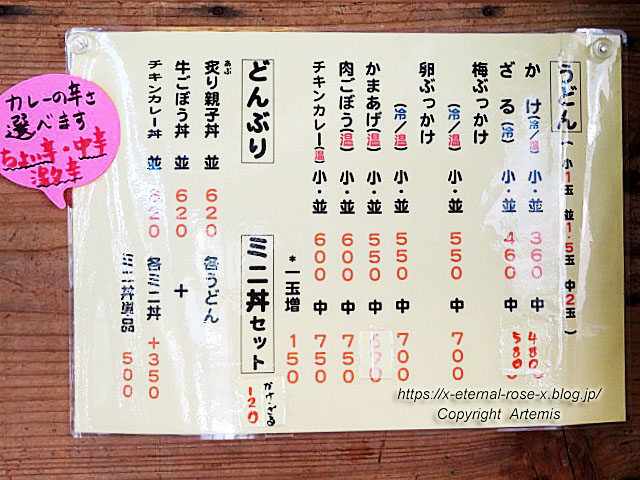 うどん (小1玉 並1.5玉 中2玉)
かけ(冷/温) 小・並 360 中 480
ざる(冷) 小・並 460 中 580
梅ぶっかけ
(冷/温) 小・並 550 中 700
卵ぶっかけ
(冷/温) 小・並 550 中 700
かまあげ(温) 小・並 550 中 670
肉ごぼう(温) 小・並 600 中 750
チキンカレー(温) 小・並 600 中 750
*一玉増 150
かけ・ざる 120
どんぶり
炙り親子丼 並 620
あぶ
牛ごぼう丼 並 620
チキンカレー丼 並 620
ミニ丼セット
各うどん
+
各ミニ丼 +350
ミニ丼単品 500
カレーの辛さ
選べます
ちょい辛・中辛
激辛
https://x-eternal-rose-x.blog.jp/
Copyright Artemis